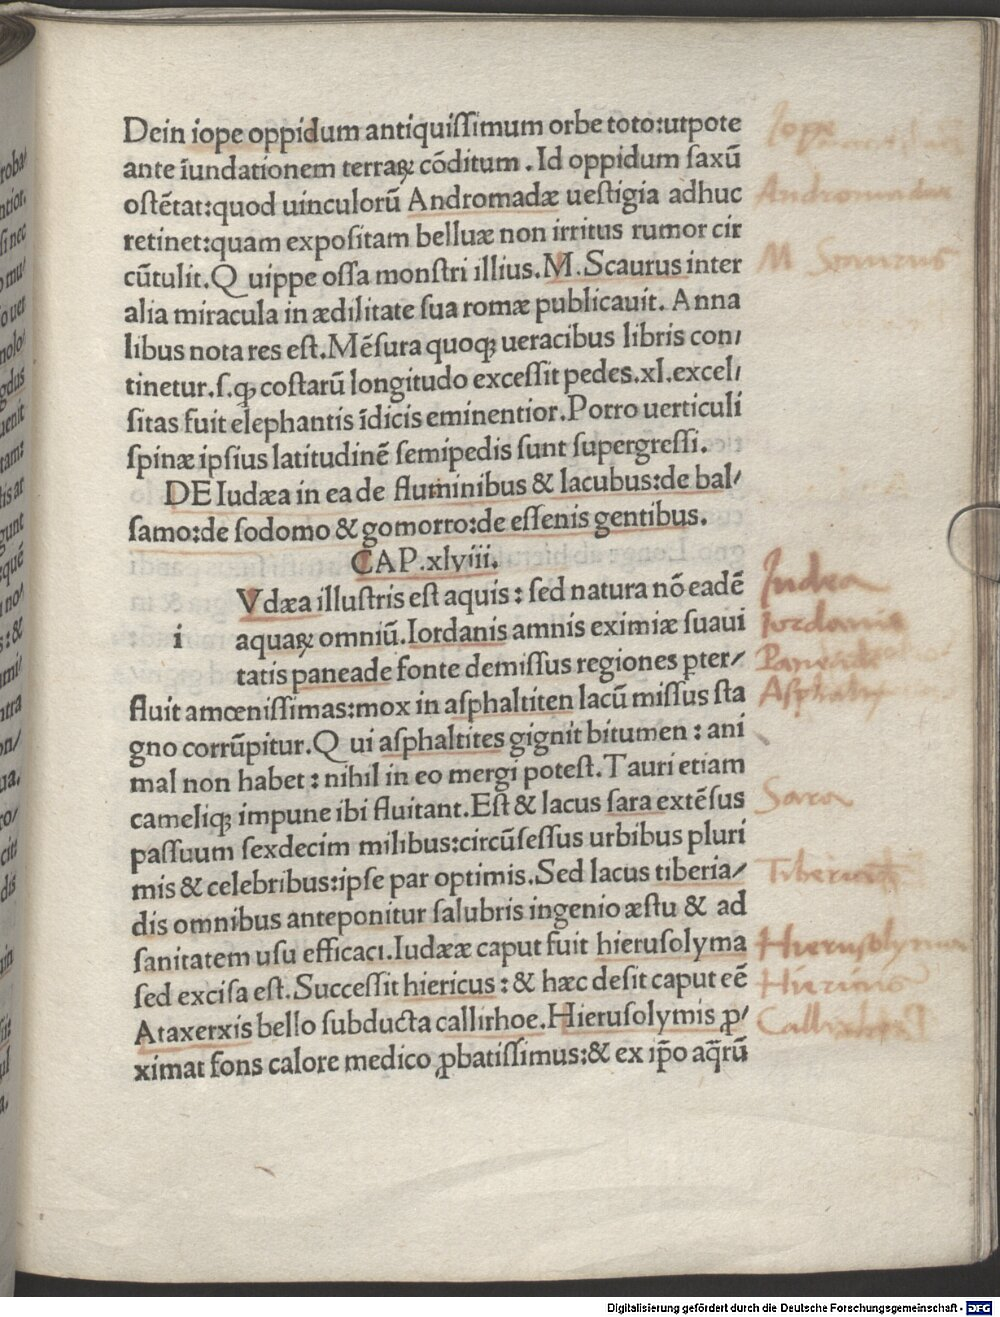 Dein iope oppidum antiquiſſimum orbe toto:utpote
ante īundationem terraꝝ cōditum . Id oppidum ſaxū
oſtētat:quod uinculorū Andromadæ ueſtigia adhuc
retinet:quam expoſitam belluæ non irritus rumor cir
cūtulit. Q uippe oſſa monſtri illius. M. Scaurus inter
alia miracula in ædilitate ſua romæ publicauit. Anna
libus nota res eſt. Mēſura quoqꝫ ueracibus libris con/
tinetur. ſ. ꝙ coſtarū longitudo exceſſit pedes.xl. excel/
ſitas fuit elephantis īdicis eminentior. Porro uerticuli
ſpinæ ipſius latitudinē ſemipedis ſunt ſupergreſſi.
DE Iudæa in ea de fluminibus & lacubus:de bal/
ſamo:de ſodomo & gomorro:de eſſenis gentibus.
CAP. xlviii.
Vdæa illuſtris eſt aquis : ſed natura nō eadē
i aquaꝝ omniū. Iordanis amnis eximiæ ſuaui
tatis paneade fonte demiſſus regiones ꝑter/
fluit amœniſſimas:mox in aſphaltiten lacū miſſus ſta
gno corrūpitur. Q ui aſphaltites gignit bitumen : ani
mal non habet : nihil in eo mergi poteſt. Tauri etiam
cameliqꝫ impune ibi fluitant. Eſt & lacus ſara extēſus
paſſuum ſexdecim milibus:circūſeſſus urbibus pluri
mis & celebribus:ipſe par optimis. Sed lacus tiberia/
dis omnibus anteponitur ſalubris ingenio æſtu & ad
ſanitatem uſu efficaci. Iudææ caput fuit hieruſolyma
ſed exciſa eſt. Succeſſit hiericus : & hæc deſit caput eē
Ataxerxis bello ſubducta callirhoe. Hieruſolymis ꝓ/
ximat fons calore medico ꝓbatiſſimus:& ex ip̄o aq̄rū
Iope
Andromadae
M Scaurus
Iudea
Iordanis
Paneade
Sara
Hierusolyma
Digitalisierung gefördert durch die Deutsche Forschungsgemeinschaft - DFG